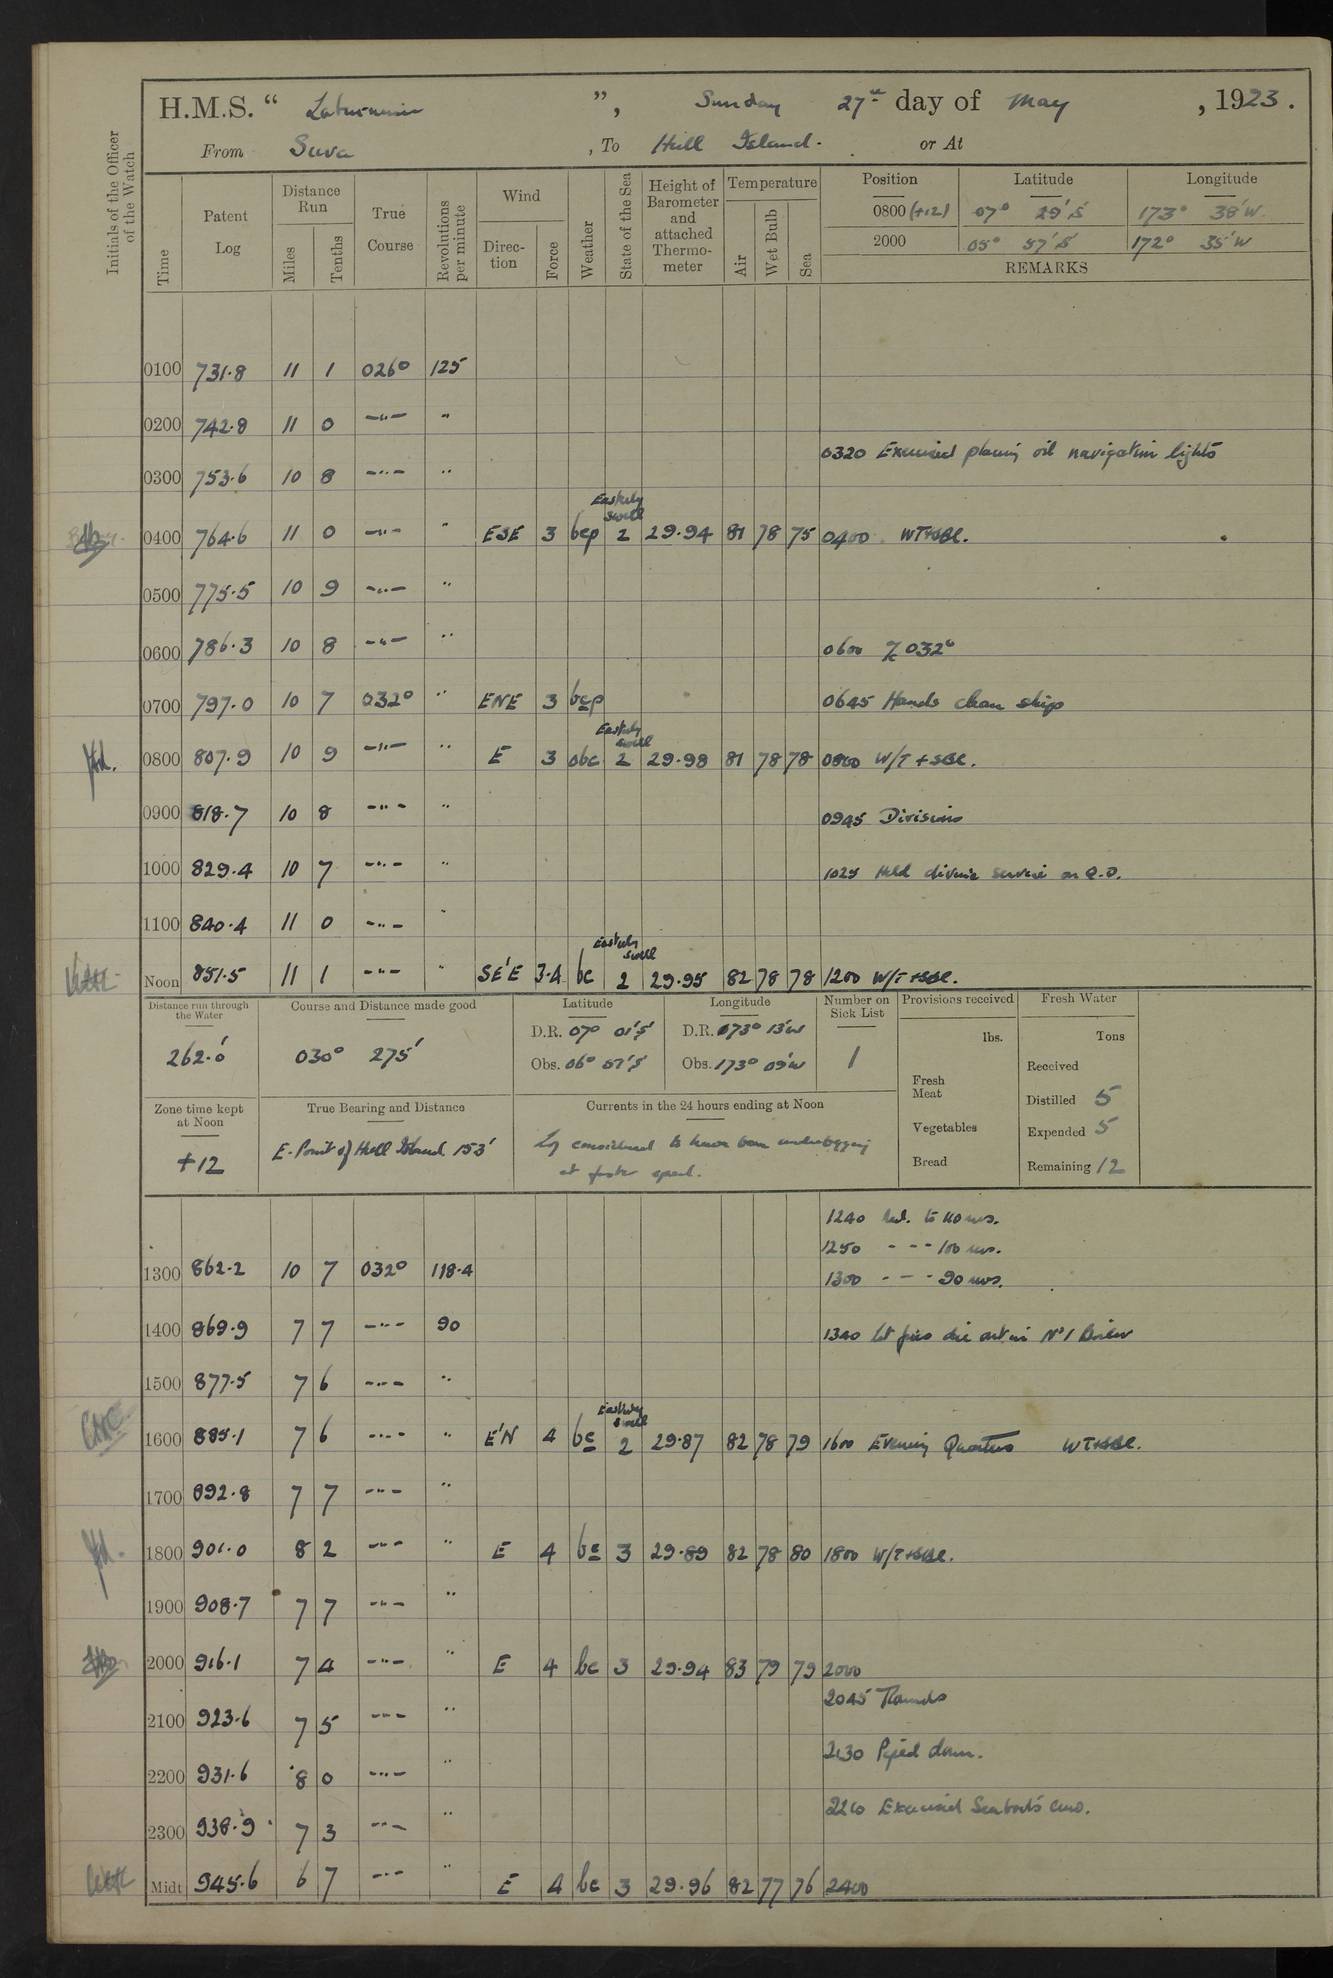 H.M.S. “ Laburnum ”, Sunday 27th day of May , 1923 .
From Suva , To Hull Island . or At
Initials of the Officer of the Watch
Time
Patent Log
Distance Run
Miles
Tenths
True Course
Revolutions per minute
Wind
Direction
Force
Weather
State of the Sea
Height of Barometer and attached Thermometer
Temperature
Air
Wet Bulb
Sea
Position Latitude Longitude
0800 (+12) 07° 29' S 173° 38' W
2000 05° 57' S 172° 35' W
REMARKS
0100 731.8 11 1 026° 125
0200 742.8 11 0 —"— "
0320 Exercised placing oil navigation lights
0300 753.6 10 8 —"— "
Easterly swell
0400 764.6 11 0 —"— " ESE 3 bcp 2 29.94 81 78 75 0400 WT+SBl.
0500 775.5 10 9 —"— "
0600 786.3 10 8 —"— " 0600 032°
0700 797.0 10 7 032° " ENE 3 bcp 0645 Hands clean ship
Easterly swell
0800 807.9 10 9 —"— " E 3 obc 2 29.98 81 78 78 0800 W/T + SBl.
0900 818.7 10 8 —"— " 0945 Divisions
1000 829.4 10 7 —"— " 1025 Held divine service on Q.D.
1100 840.4 11 0 —"— "
Easterly swell
Noon 851.5 11 1 —"— " SE'E 3-4 bc 2 29.95 82 78 78 1200 W/T + SBl.
Distance run through the Water
262.0'
Course and Distance made good
030° 275'
Latitude
D.R. 07° 01' S
Obs. 06° 57' S
Longitude
D.R. 173° 13' W
Obs. 173° 09' W
Number on Sick List
1
Provisions received
lbs.
Fresh Meat
Vegetables
Bread
Fresh Water
Tons
Received
Distilled 5
Expended 5
Remaining 12
Zone time kept at Noon
+12
True Bearing and Distance
E. Point of Hull Island 153'
Currents in the 24 hours ending at Noon
Log considered to have been underlogging
at faster speed.
1240 Red. to 110 revs.
1250 - - - 100 revs.
1300 862.2 10 7 032° 118.4 1300 - - - 90 revs.
1400 869.9 7 7 —"— 90 1340 let fires die out in No 1 Boiler
1500 877.5 7 6 —"— "
Easterly swell
1600 885.1 7 6 —"— " E'N 4 bc 2 29.87 82 78 79 1600 Evening Quarters WT+SBl.
1700 892.8 7 7 —"— "
1800 901.0 8 2 —"— " E 4 bc 3 29.89 82 78 80 1800 W/T+SBl.
1900 908.7 7 7 —"— "
2000 916.1 7 4 —"— " E 4 bc 3 29.94 83 79 79 2000
2045 Rounds
2100 923.6 7 5 —"— "
2130 Piped down.
2200 931.6 8 0 —"— "
2210 Exercised Seaboat's crew.
2300 938.9 7 3 —"— "
Midt 945.6 6 7 —"— " E 4 bc 3 29.96 82 77 76 2400